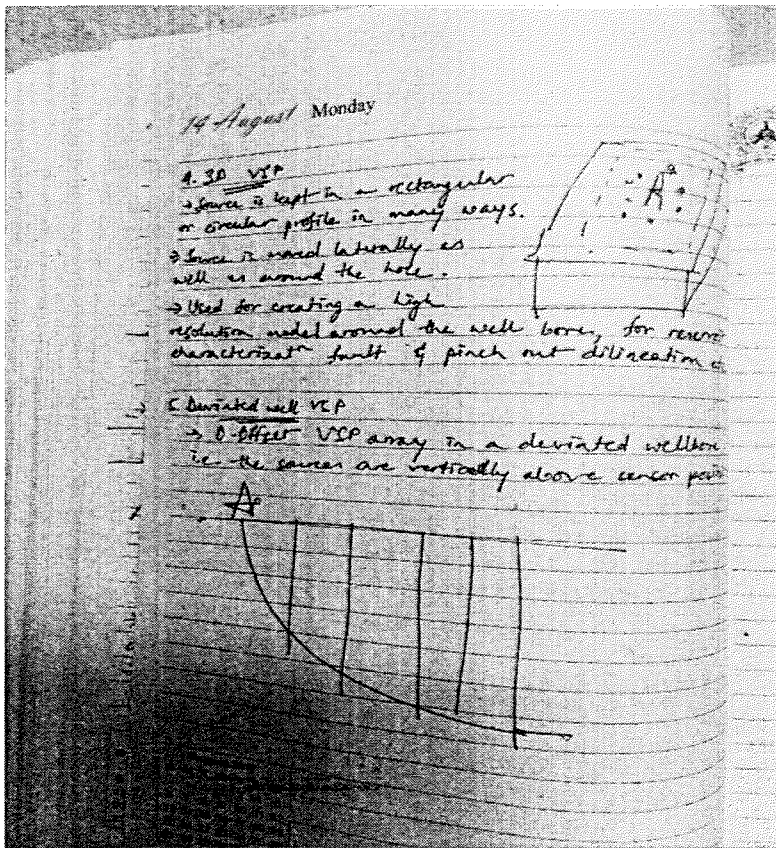 14 August Monday
4. 3D VSP
→ Source is kept in a rectangular
or circular profile in many ways.
→ Source is moved laterally as
well as around the hole.
→ Used for creating a high
resolution model around the well bore, for reserv
characterizatn fault & pinch out dilineation
5. Deviated well VSP
→ 0-offset VSP array in a deviated wellbore
i.e. the sources are vertically above sensor